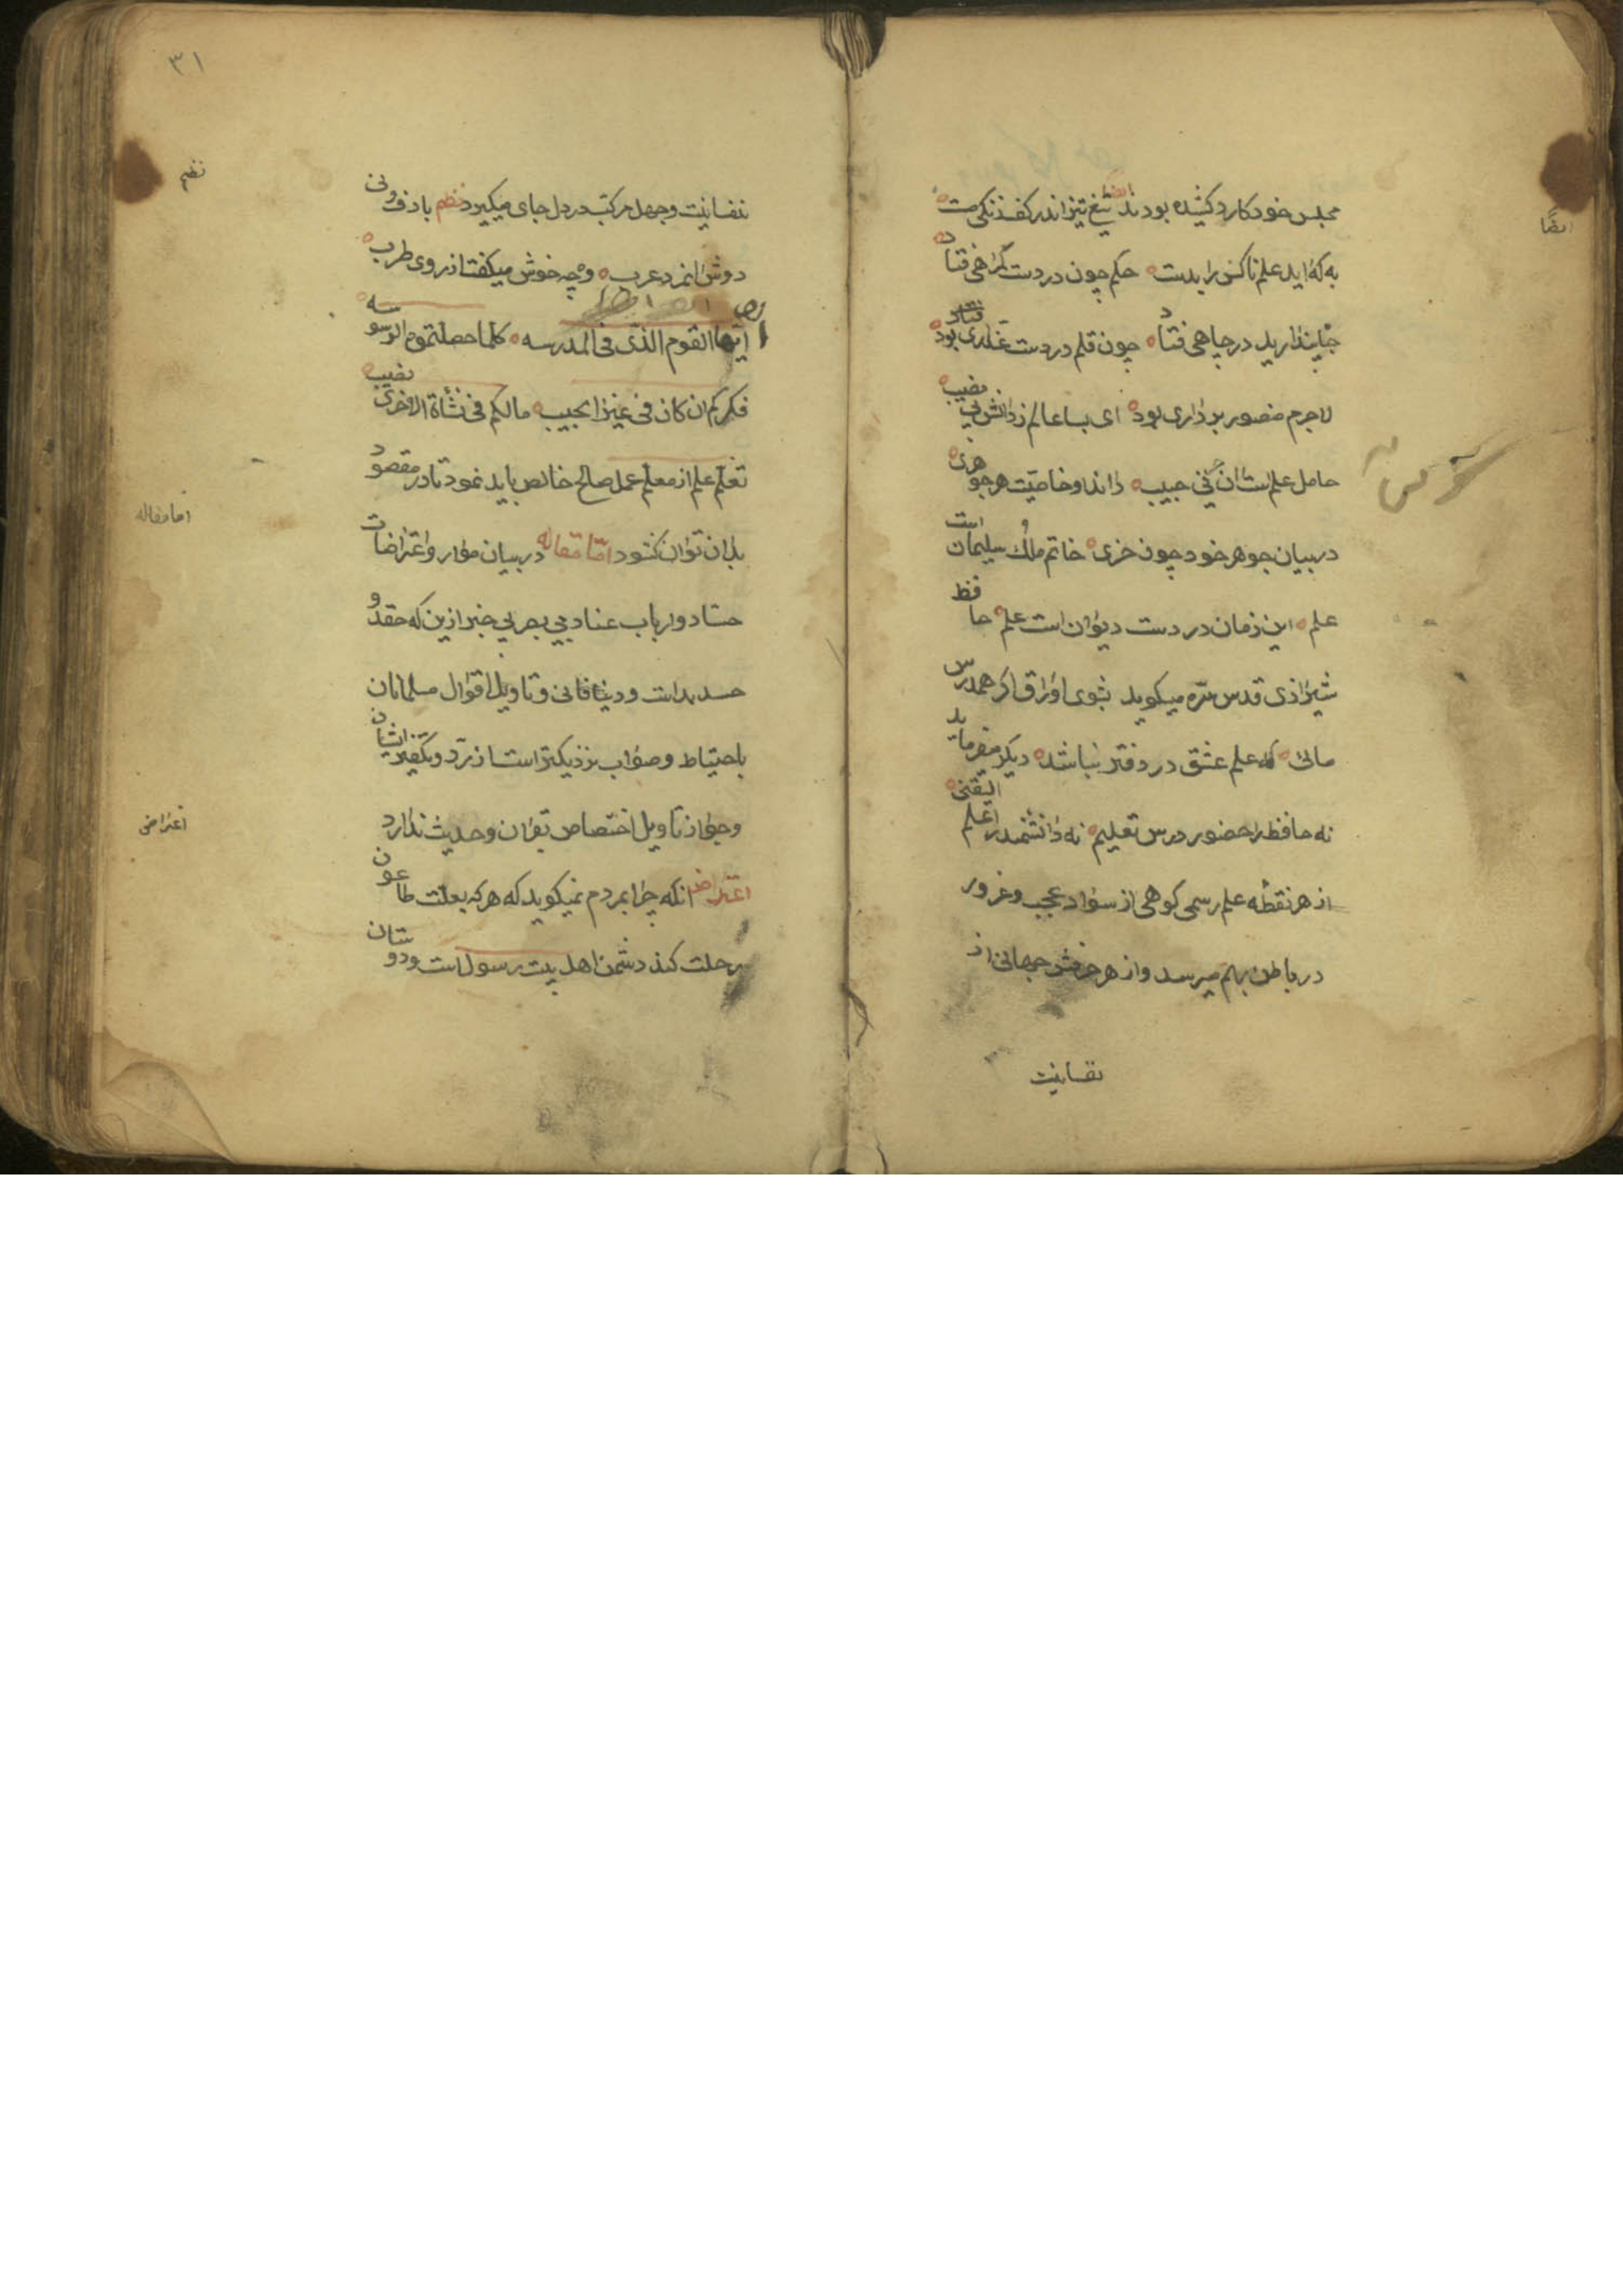 مجلس خود کارد کشیده بودند ایضا تیغ تیز اندر کف زنکی مست
ایضًا
به که اید علم ناکس را بدست حکم چون در دست کراهی فتاد
جا پندارید در چاهی فتاد چون قلم در دست غداری بود
لاجرم منصور بر داری بود ای بسا عالم ز دانش بی نصیب
حامل علم است ان کس نی حبیب داند او خاصیت هر جوهری
در بیان جوهر خود چون خری خاتم ملک سلیمان است
علم این زمان در دست دیوان است علم حافظ
شیرازی قدس سره میکوید بشوی اوراق اکر همدرس
مائی که علم عشق در دفتر نباشد دیکر میفرماید
نه حافظ را حضور درس تعلیم نه دانشمند را علم الیقینی
از هر نقطه علم رسمی کوهی از سواد عجب و غرور
در باطن بهم میرسد و از هر حرفش جهانی از
نفسانیت
۳۱
نظم
نفسانیت و جهل مرکب در دل جای میکیرد نظم باد فروتی
دوش انمرد عرب وه چه خوش میکفت از روی طرب
ایها القوم الذی فی المدرسه کلما حصلتموه الوسوسه
فکرکم ان کان فی غیر الحبیب مالکم فی نشأة الاخری نصیب
تعلم علم از معلم عمل صالح خالص باید نمود تا در مقصود
اما مقاله
بدان توان کشود اما مقاله در بیان موارد واعتراضات
حساد و ارباب عناد بیی بصر بی خبر ازین که حقد و
حسد بد است و دنیا فانی و تاویل اقوال مسلمانان
باحتیاط و صواب نزدیکتر است از رد و تکفیر ایشان
وجواز تاویل اختصاص بقران وحدیث ندارد
اعتراض
اعتراض انکه چرا بمردم نمیکوید که هر که بعلت طاعون
رحلت کند دشمن اهل بیت رسول است و دوستان